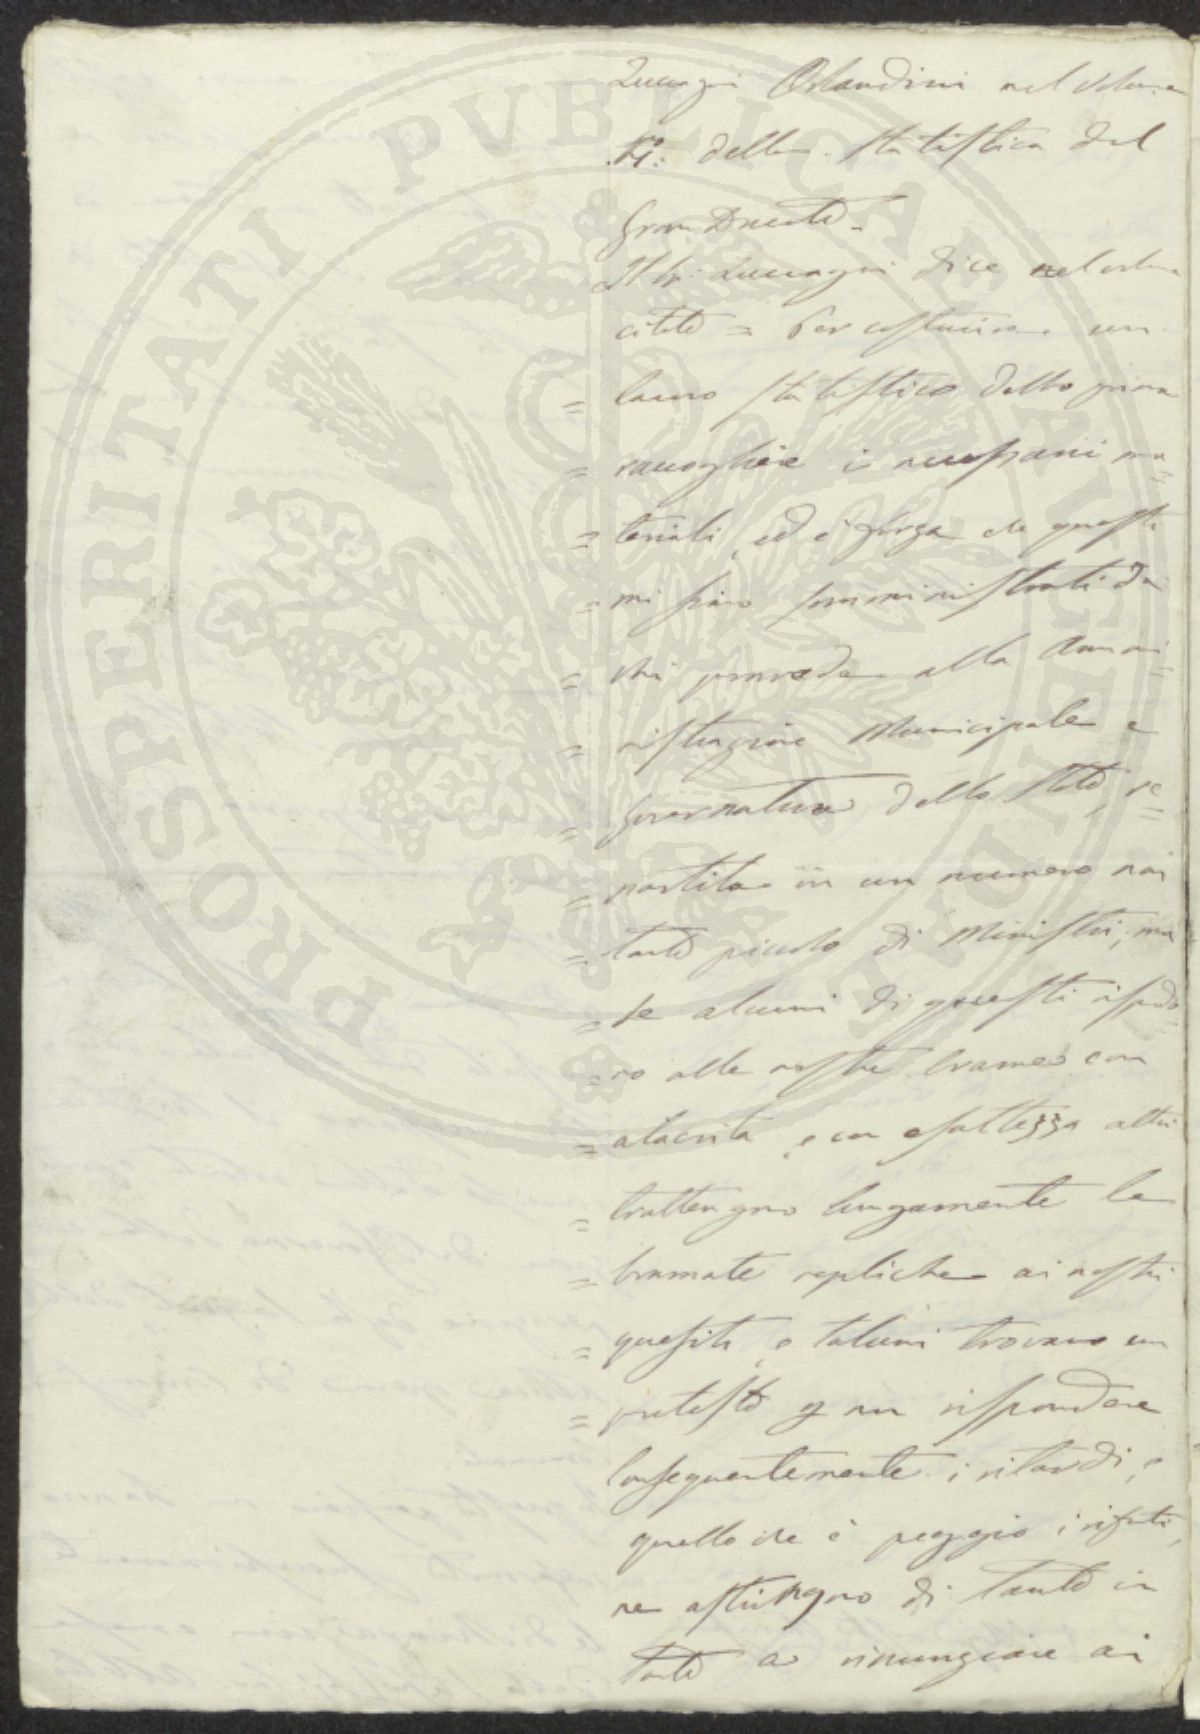 Zuccagni Orlandini nel volume
VI: della Statistica del
Gran Ducato.
Il Sr: Zuccagni dice nel volume
citato = Per costruire un
= lavoro statistico debbo prima
= raccogliere i necessarii ma=
= teriali, ed è forza che questi
= mi siano somministrati da
= chi provvede alla Ammi=
= nistrazione Municipale e
= Governativa dello Stato, re=
= partita in un numero non
= tanto piccolo di Ministri; ma
= se alcuni di questi rispo=
= ro alle nostre brame con
= alacrità, e con esattezza altri
= trattengono lungamente le
= bramate repliche ai nostri
= quesiti, e taluni trovano un
= pretesto p non rispondere
Conseguentemente i ritardi, e
quello che è peggio i rifiuti,
ne astringono di tanto in
tanto a rinunziare ai
PROSPERITATI PVBLICAE AVGENDAE